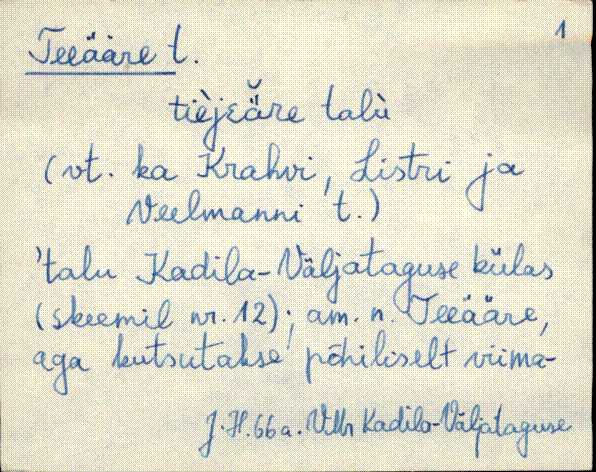 1
Teeääre t.
tièjɛä̆re talù
(vt. ka Krahvi, Listri ja
Veelmanni t.)
'talu Kadila-Väljataguse külas
(skeemil nr. 12); am. n. Teeääre,
aga kutsutakse põhiliselt viima-
J.H. 66 a. VMr Kadila-Väljataguse